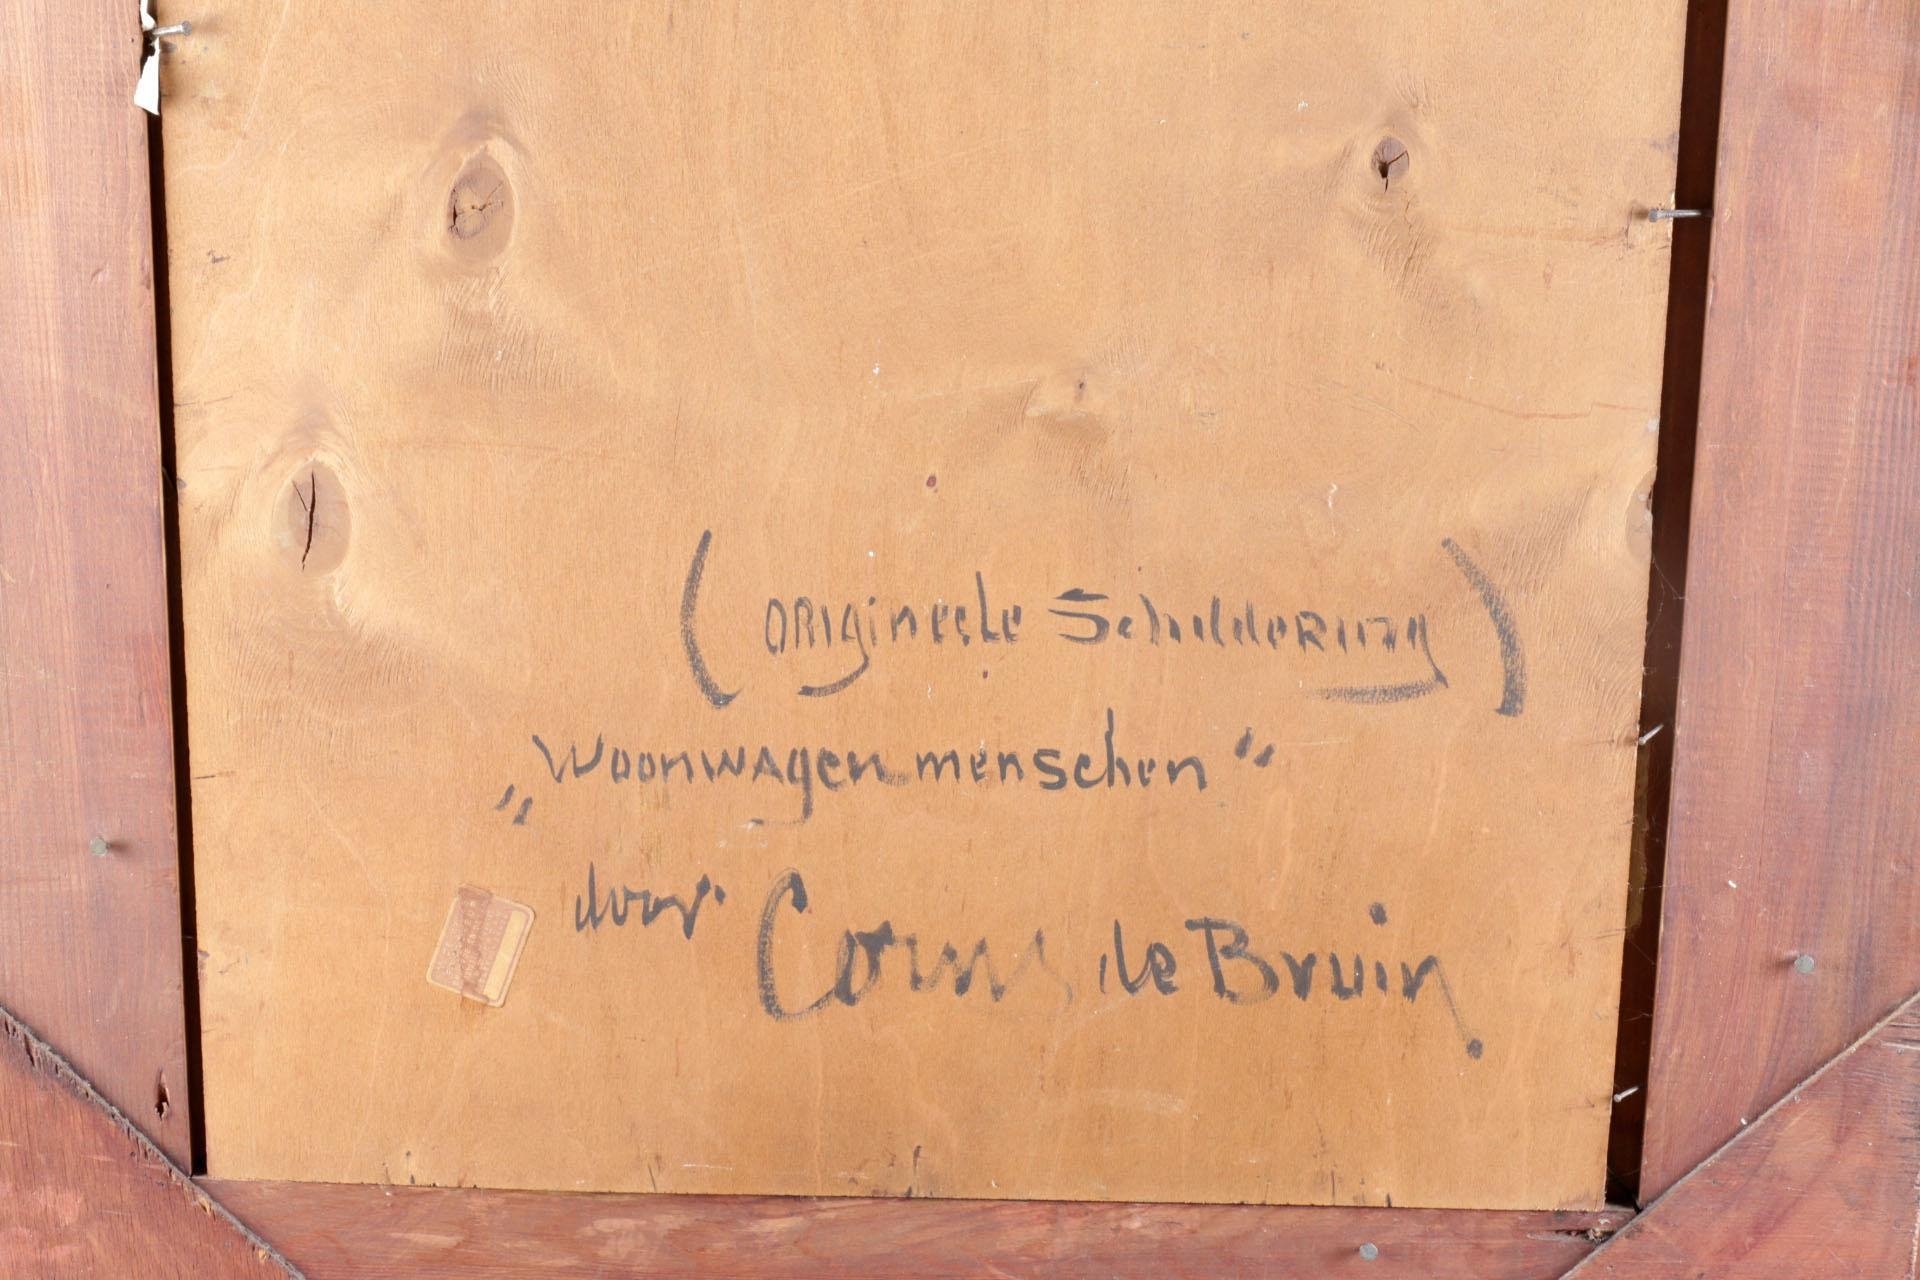 (origineele Schildering)
„Woonwagenmenschen"
door Cornς de Bruin